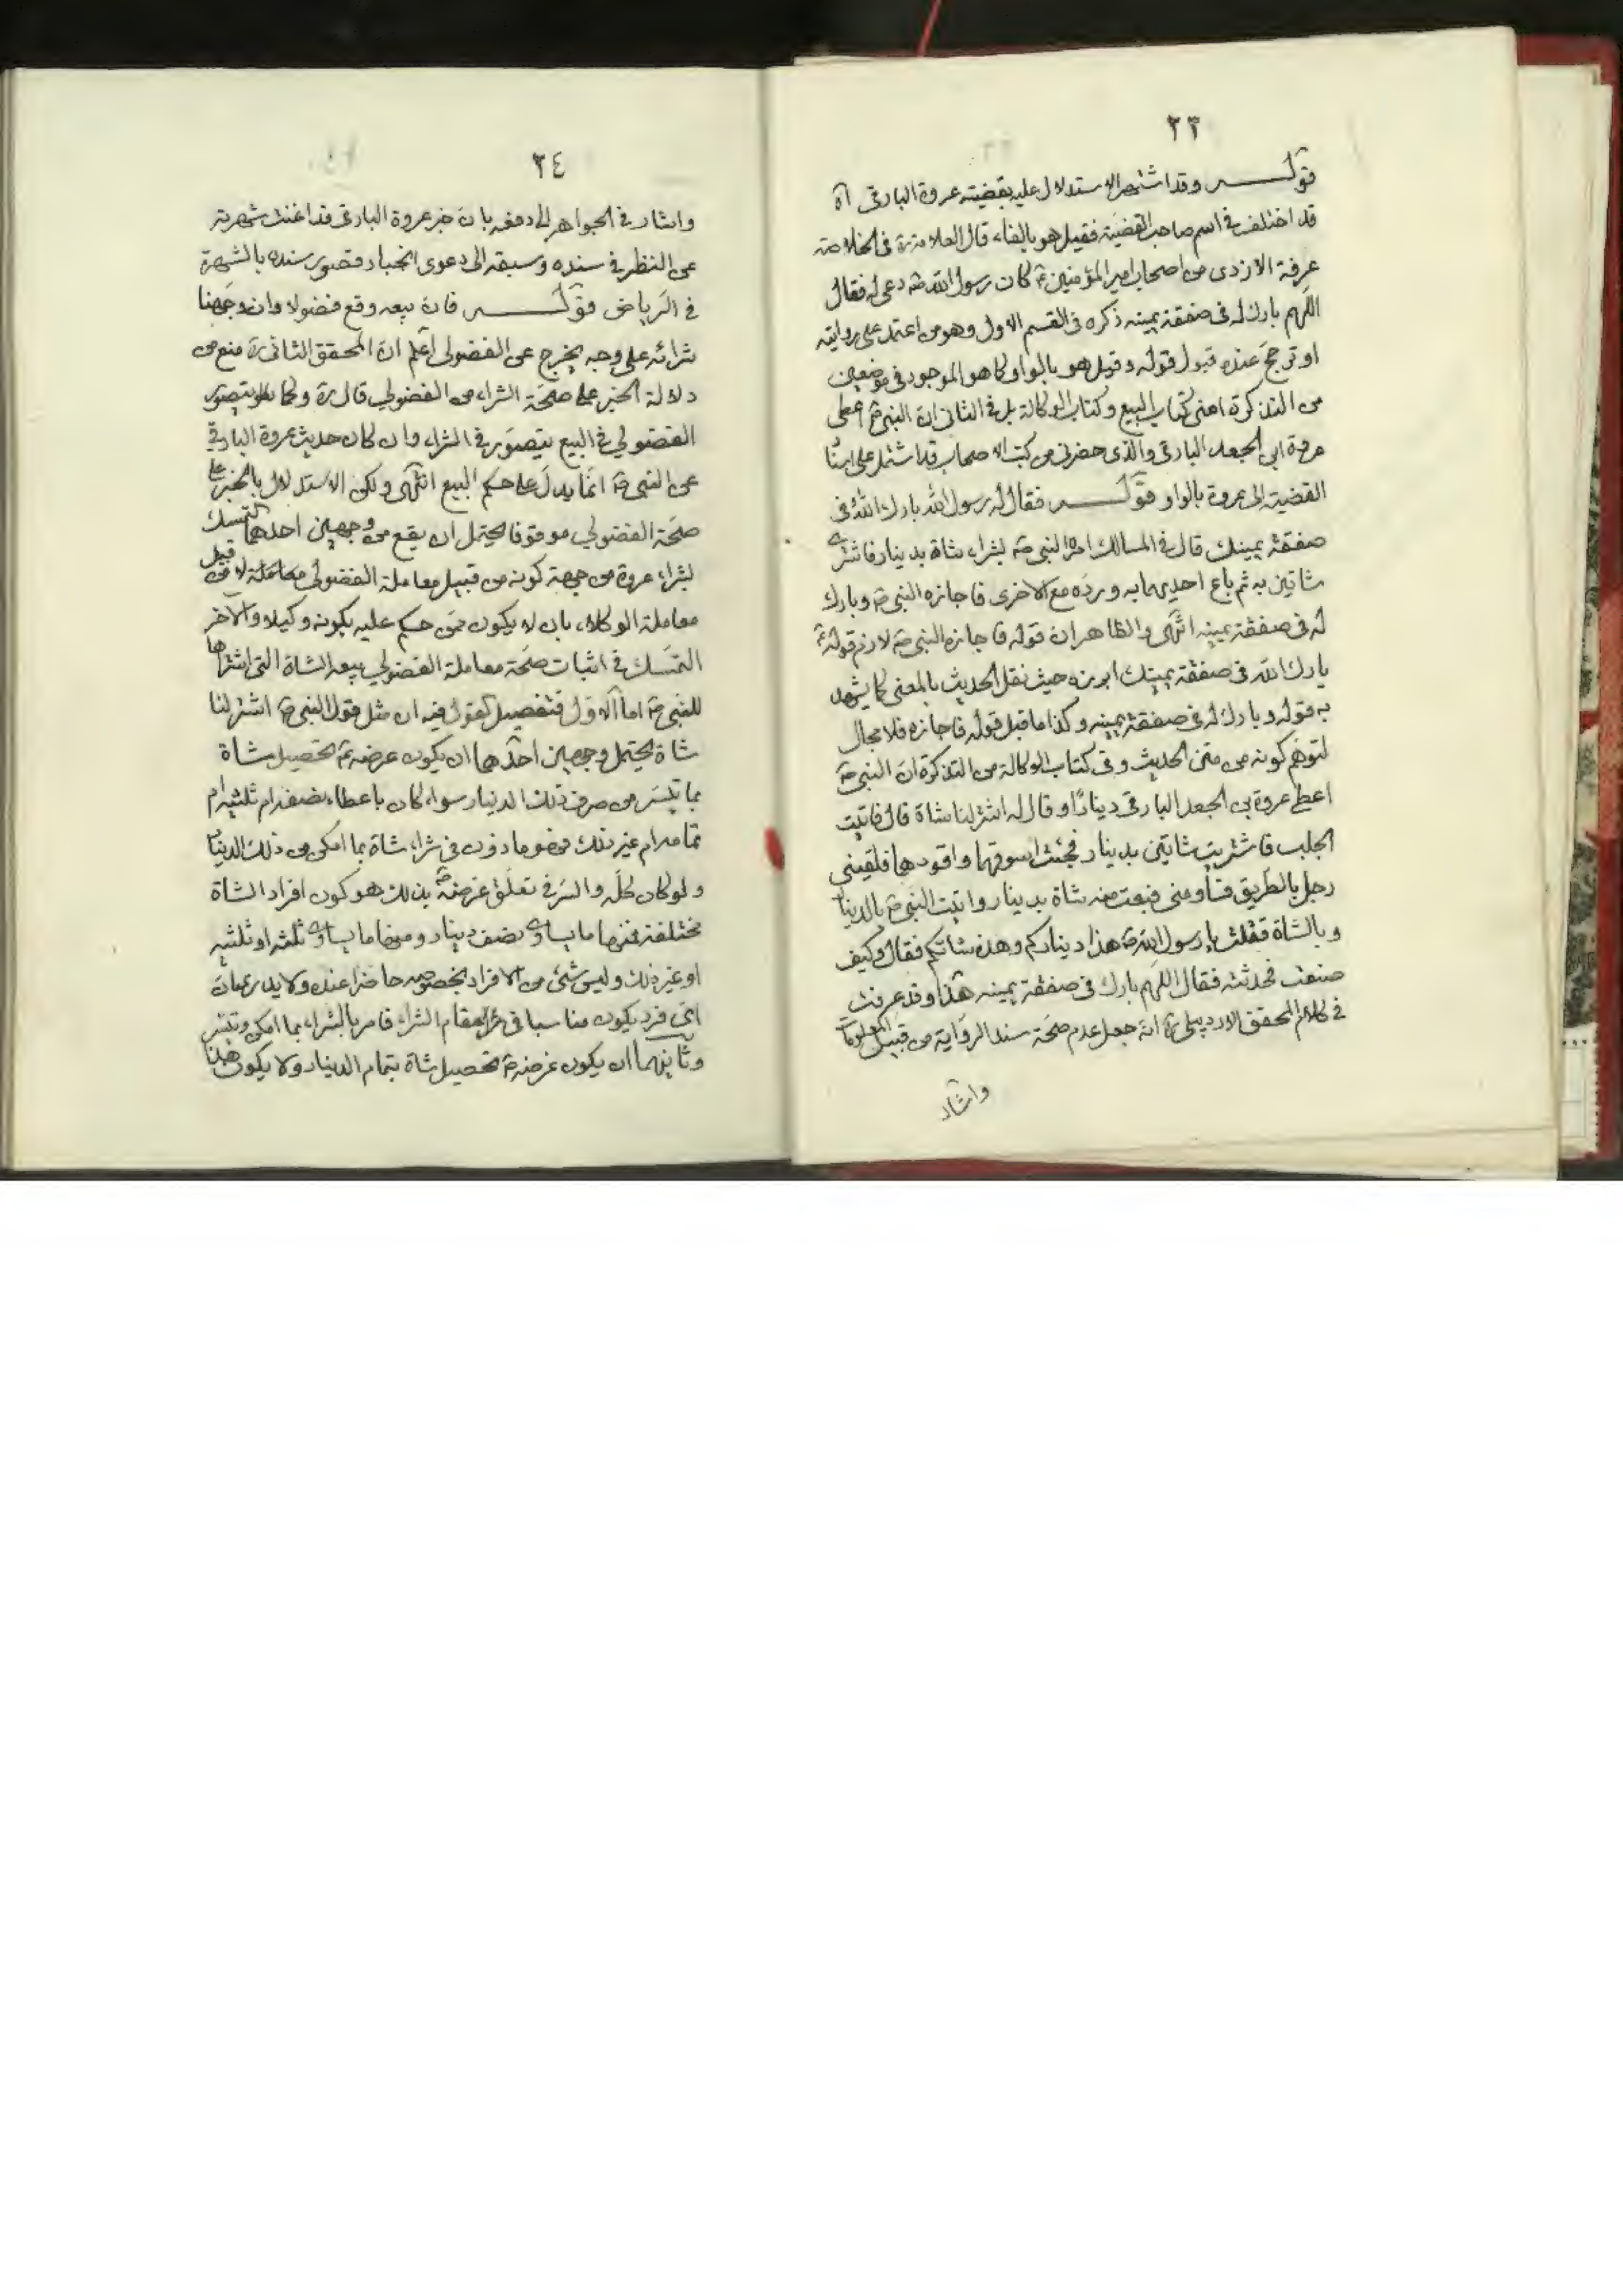 ٢٣
قوله وقد اشتهر الاستدلال عليه بقضية عروة البارقي آه
قد اختلف في اسم صاحب القضية فقيل هو بالفاء قال العلامة ره في الخلاصة
عرفة الازدى من اصحاب امير المؤمنين ع كان رسول الله ص دعى له فقال
اللهم بارك له في صفقة يمينه ذكره في القسم الاول وهو من اعتمد على روايته
او ترجح عنده قبول قوله وقيل هو بالواو كما هو الموجود في موضعين
من التذكرة اعنى كتاب البيع وكتاب الوكالة بل في الثاني ان النبي ص اعطى
عروة ابي الجعد البارقي والذي حضرني من كتب الاصحاب قد اشتمل على
القضية الى عروة بالواو قوله فقال له رسول الله بارك الله في
صفقة يمينك قال في المسالك امره النبي ص بشراء شاة بدينار فاشترى
شاتين به ثم باع احديهما به ورده مع الاخرى فاجازه النبي ص وبارك
له في صفقة يمينه انتهى والظاهر ان قوله فاجازه النبي ص لازم قوله ع
بارك الله في صفقة يمينك ابرزه حيث نقل الحديث بالمعنى كما يشهد
به قوله وبارك له في صفقة يمينه وكذا ما قبل قوله فاجازه فلا مجال
لتوهم كونه من متن الحديث وفي كتاب الوكالة من التذكرة ان النبي ص
اعطى عروة بن الجعد البارقي دينارًا وقال له اشتر لنا شاة قال فاتيت
الجلب فاشتريت شاتين بدينار فجئت اسوقهما واقودهما فلقيني
رجل بالطريق فساومني فبعت منه شاة بدينار واتيت النبي ص بالدينار
وبالشاة فقلت يا رسول الله ص هذا دينار كم وهذه شاتكم فقال وكيف
صنعت فحدثته فقال اللهم بارك في صفقة يمينه هذا وقد عرفت
في كلام المحقق الاردبيلي ره انه جعل عدم صحة سند الرواية من قبيل المعلومات
واشار
٢٤
واشار في الجواهر الى دفعه بان خبر عروة البارقي قد اغنت شهرته
عن النظر في سنده وسبقه الى دعوى انجبار قصور سنده بالشهرة
في الرياض قوله فان بيعه وقع فضولا وان وجهنا
شرائه على وجه يخرج عن الفضولي اعلم ان المحقق الثاني ره منع من
دلالة الخبر على صحة الشراء من الفضولي قال ره وكما يتصور
الفضولي في البيع يتصور في الشراء وان كان حديث عروة البارقي
عن النبي ص انما يدل على حكم البيع انتهى ولكن الاستدلال بالخبر على
صحة الفضولي موقوفا يحتمل ان يقع من وجهين احدهما التمسك
بشراء عروة من جهة كونه من قبيل معاملة الفضولي لا من قبيل
معاملة الوكلاء بان لا يكون ممن حكم عليه بكونه وكيلا والآخر
التمسك في اثبات صحة معاملة الفضولي ببيعه الشاة التي اشتراها
للنبي ص اما الاول فتفصيل القول فيه ان مثل قول النبي ص اشتر لنا
شاة يحتمل وجهين احدهما ان يكون غرضه ع تحصيل شاة
بما تيسر من صرف ذلك الدينار سواء كان باعطاء نصفه ام ثلثه ام
تمامه ام غير ذلك فهو ماذون في شراء شاة بما امكن من ذلك الدينار
ولو كان كله والسر في تعلق غرضه ص بذلك هو كون افراد الشاة
مختلفة فمنها ما يساوى نصف دينار ومنها ما يساوى ثلثه او ثلثيه
او غير ذلك وليس شئ من الافراد بخصوصه حاضرا عنده ولا يدرى ان
اي فرد يكون مناسبا في مقام الشراء فامر بالشراء بما امكن وتيسر
وثانيهما ان يكون غرضه ص تحصيل شاة بتمام الدينار ولا يكون هذا